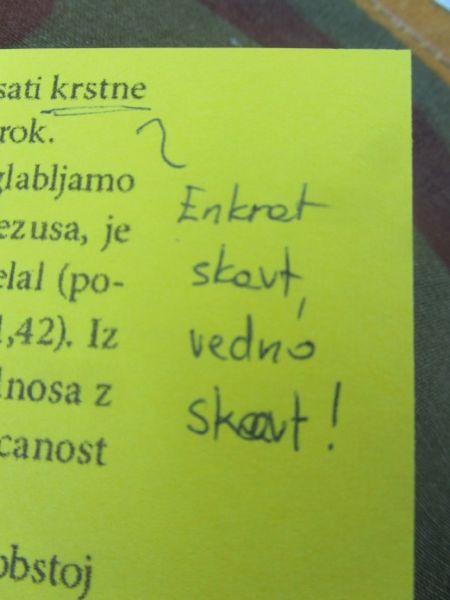 sati krstne
rok.
glabljamo
ezusa, je
elal (po-
1,42). Iz
dnosa z
canost
obstoj
Enkrat
skavt,
vedno
skavt!